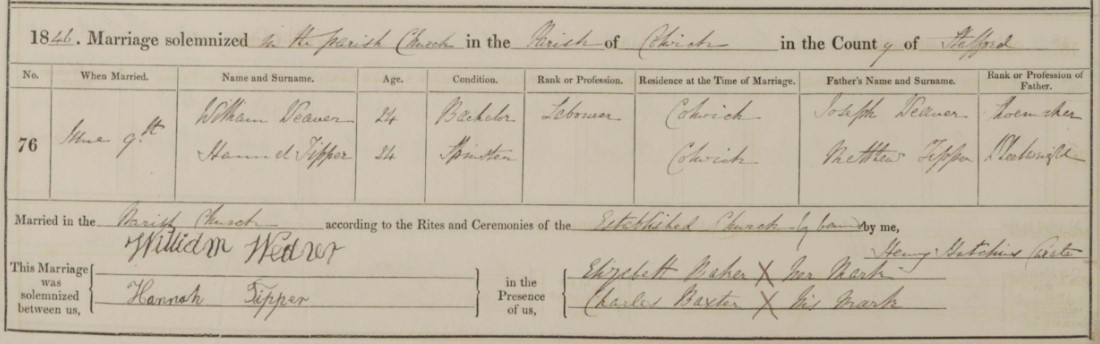 1846. Marriage solemnized in the parish Church in the Parish of Colwich in the County of Stafford
No. When Married. Name and Surname. Age. Condition. Rank or Profession. Residence at the Time of Marriage. Father's Name and Surname. Rank or Profession of Father.
William Weaver 24 Bachelor Labourer Colwich Joseph Weaver Shoemaker
76 June 9th
Hannah Tipper 24 Spinster Colwich Matthew Tipper Wheelwright
Married in the Parish Church according to the Rites and Ceremonies of the Established Church by banns by me,
Henry Hutchins Curate
This Marriage was solemnized between us,
William Weaver
Hannah Tipper
in the Presence of us,
Elizabeth Baker X her Mark
Charles Baxter X his Mark